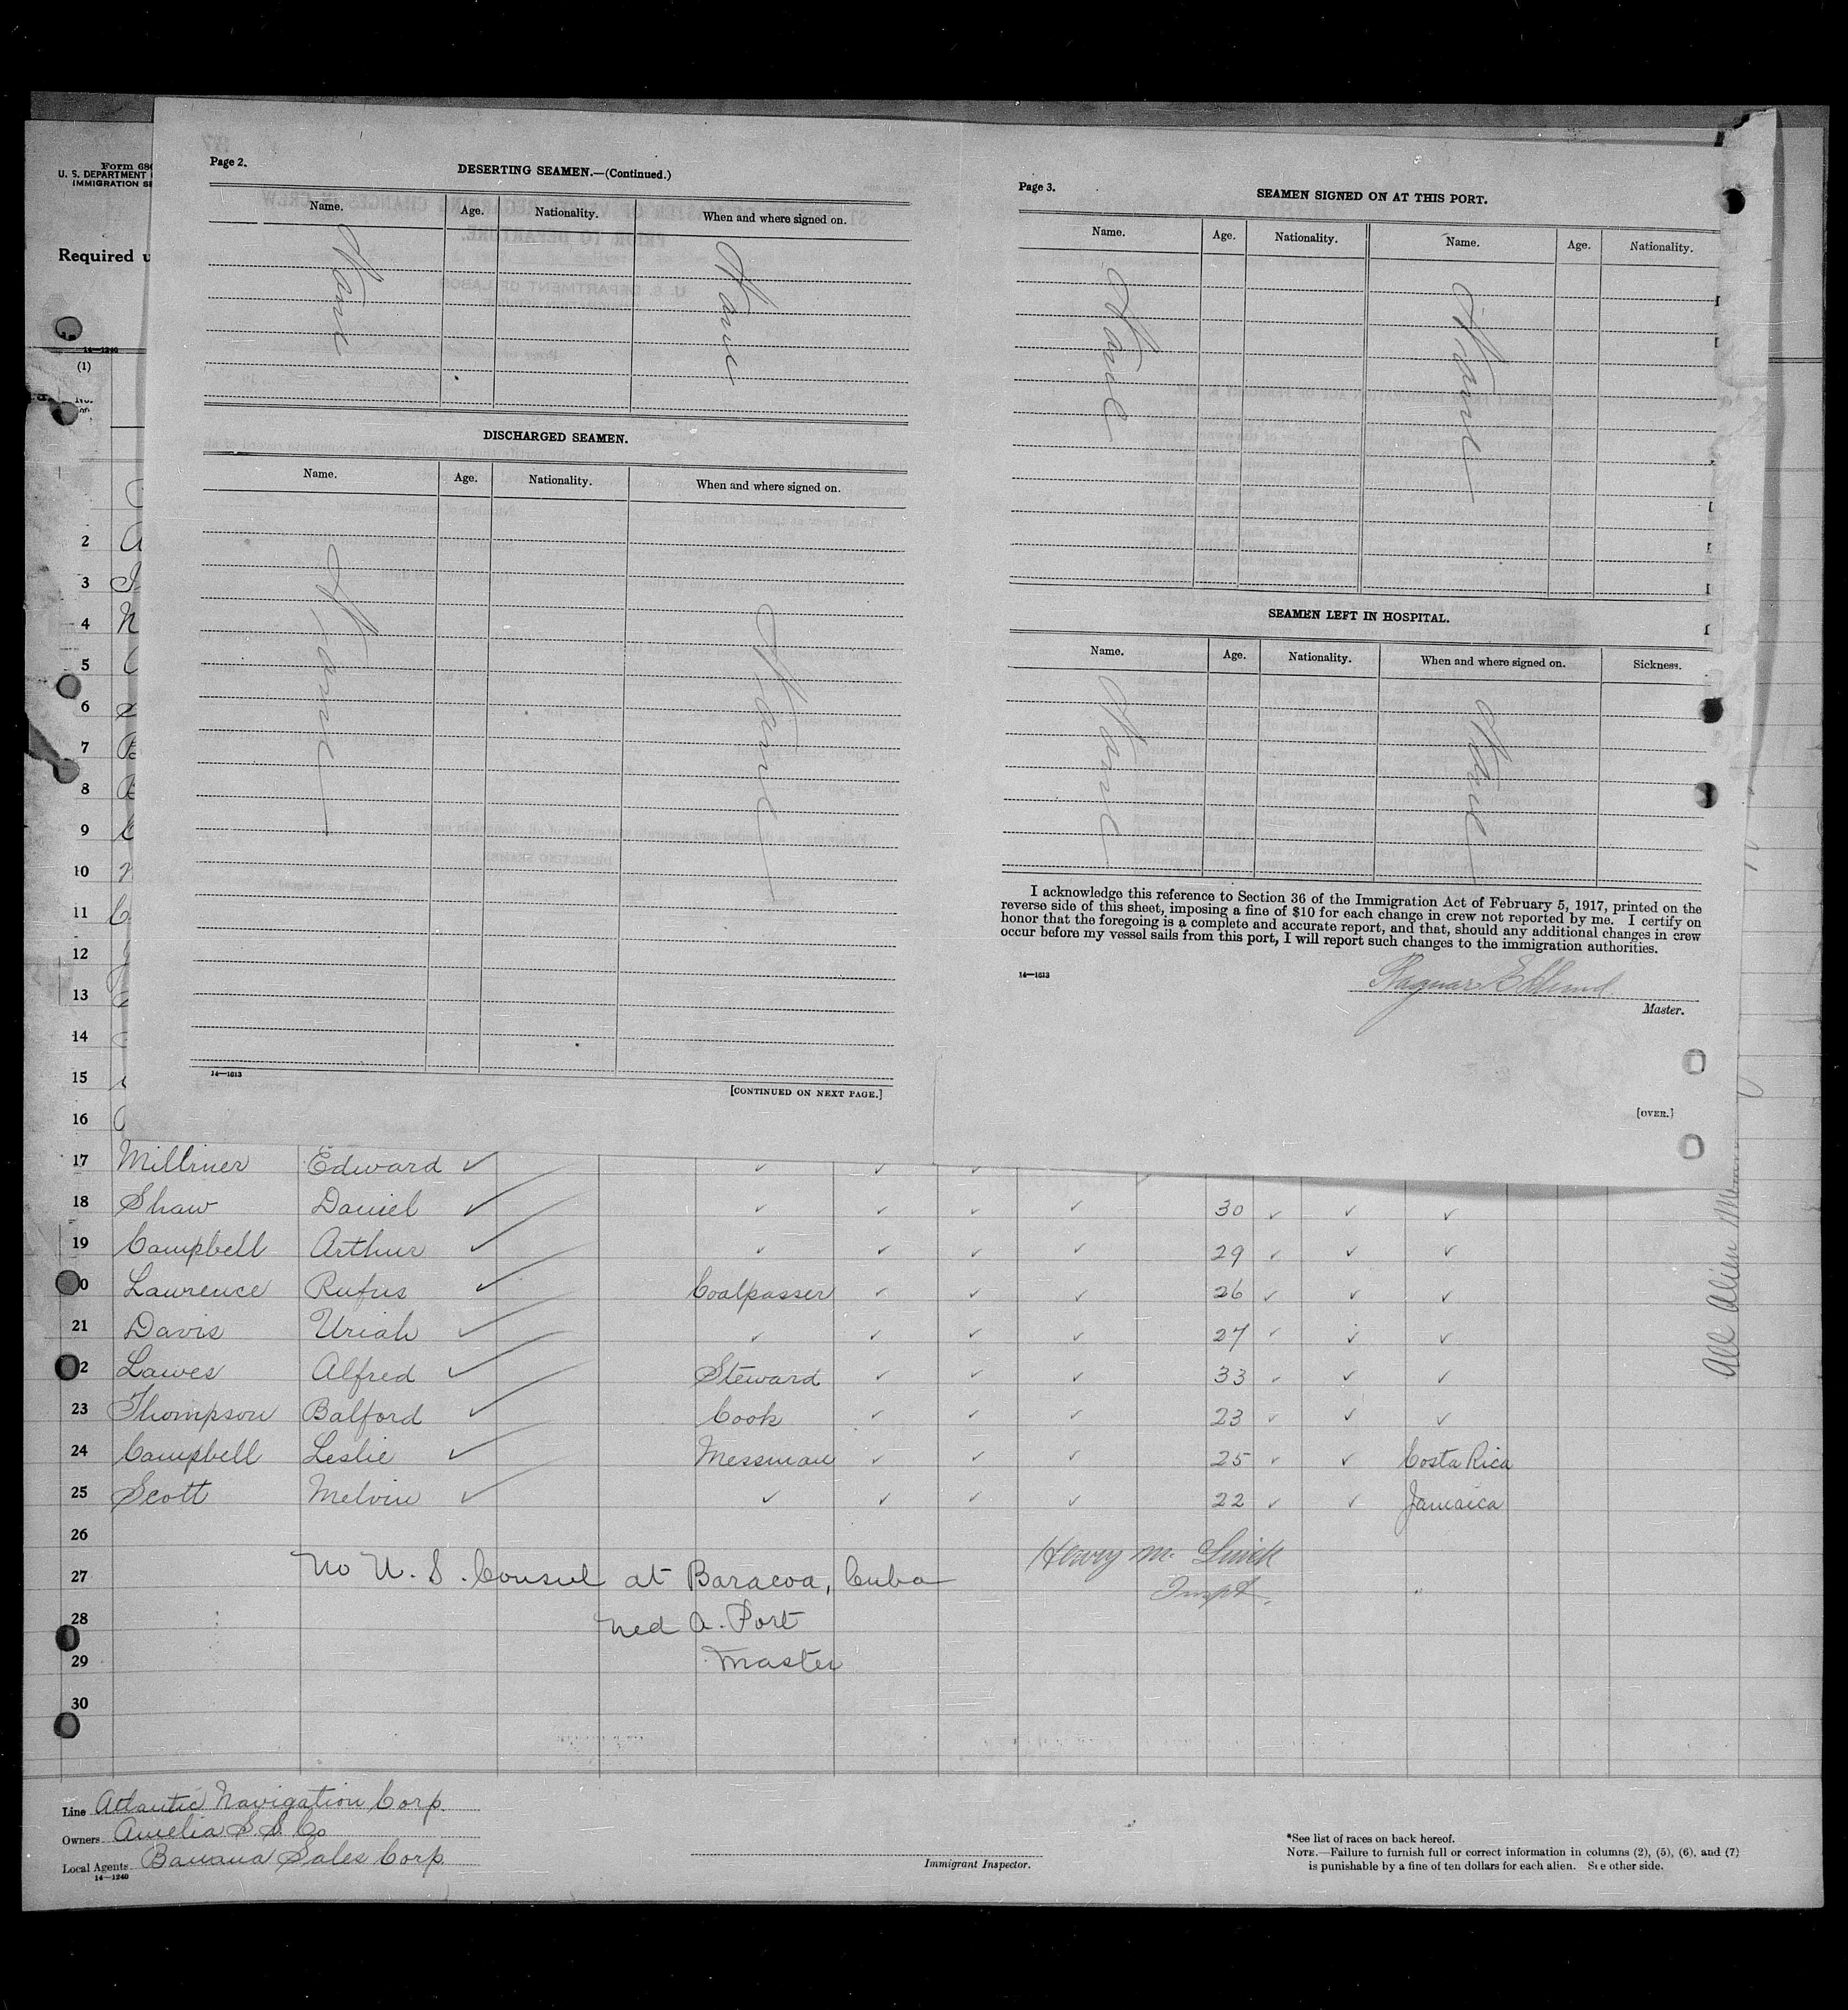 Form 680
U. S. DEPARTMENT
IMMIGRATION SE
Required u
14—1240
(1)
Page 2.
DESERTING SEAMEN.—(Continued.)
Name. Age. Nationality. When and where signed on.
None None
DISCHARGED SEAMEN.
Name. Age. Nationality. When and where signed on.
None None
14—1613
[CONTINUED ON NEXT PAGE.]
Page 3.
SEAMEN SIGNED ON AT THIS PORT.
Name. Age. Nationality. Name. Age. Nationality.
None None
SEAMEN LEFT IN HOSPITAL.
Name. Age. Nationality. When and where signed on. Sickness.
None None
I acknowledge this reference to Section 36 of the Immigration Act of February 5, 1917, printed on the
reverse side of this sheet, imposing a fine of $10 for each change in crew not reported by me. I certify on
honor that the foregoing is a complete and accurate report, and that, should any additional changes in crew
occur before my vessel sails from this port, I will report such changes to the immigration authorities.
14—1613
Ragnar Eklund
Master.
[OVER.]
2
3
4
5
6
7
8
9
10
11
12
13
14
15
16
17 Millner Edward ✓ ✓ ✓ ✓
18 Shaw Daniel ✓ ✓ ✓ ✓ ✓ 30 ✓ ✓ ✓
19 Campbell Arthur ✓ ✓ ✓ ✓ ✓ 29 ✓ ✓ ✓
0 Lawrence Rufus ✓ Coalpasser ✓ ✓ ✓ 26 ✓ ✓ ✓
21 Davis Uriah ✓ ✓ ✓ ✓ ✓ 27 ✓ ✓ ✓
2 Lawes Alfred ✓ Steward ✓ ✓ ✓ 33 ✓ ✓ ✓
23 Thompson Balford ✓ Cook ✓ ✓ ✓ 23 ✓ ✓ ✓
24 Campbell Leslie ✓ Messman ✓ ✓ ✓ 25 ✓ ✓ Costa Rica
25 Scott Melvin ✓ ✓ ✓ ✓ ✓ 22 ✓ ✓ Jamaica
26
27 No U. S. Consul at Baracoa, Cuba
28 Ned A. Port
29 Master
30
Henry M.
Inspt.
All Alien
Line Atlantic Navigation Corp.
Owners Amelia S. S. Co
Local Agents Banana Sales Corp.
14—1240
Immigrant Inspector.
*See list of races on back hereof.
NOTE.—Failure to furnish full or correct information in columns (2), (5), (6), and (7)
is punishable by a fine of ten dollars for each alien. See other side.